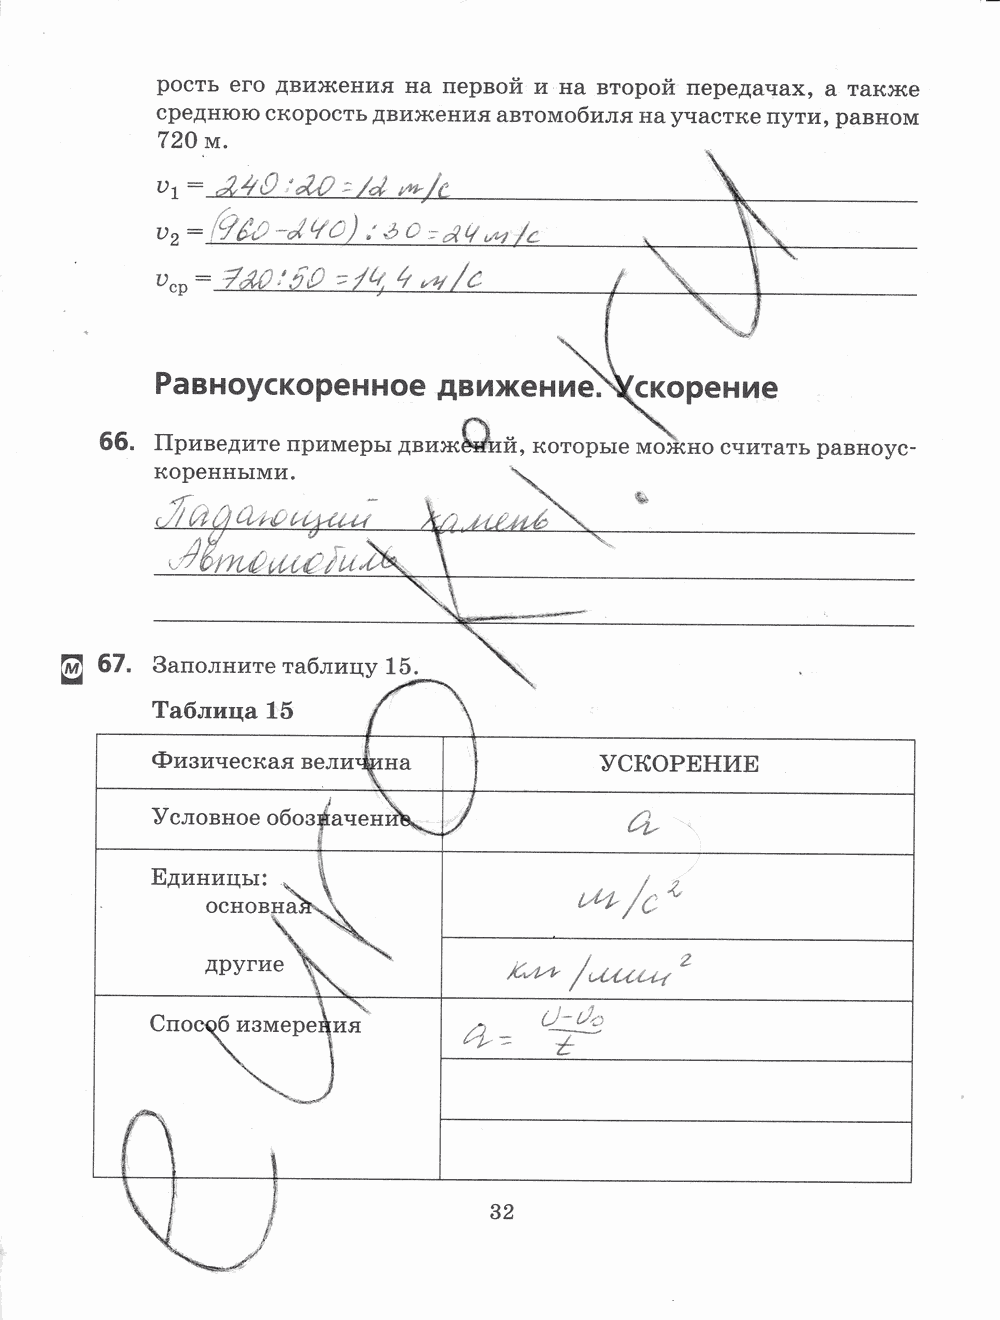 рость его движения на первой и на второй передачах, а также
среднюю скорость движения автомобиля на участке пути, равном
720 м.
v₁ = 240:20=12 м/с
v₂ = (960-240):30=24 м/с
vср = 720:50=14,4 м/с
Равноускоренное движение. Ускорение
66. Приведите примеры движений, которые можно считать равноус-
коренными.
Падающий камень
Автомобиль
М 67. Заполните таблицу 15.
Таблица 15
Физическая величина УСКОРЕНИЕ
Условное обозначение a
Единицы:
основная м/с²
другие км/мин²
Способ измерения a = (v-v₀)/t
32
eуроки.ru